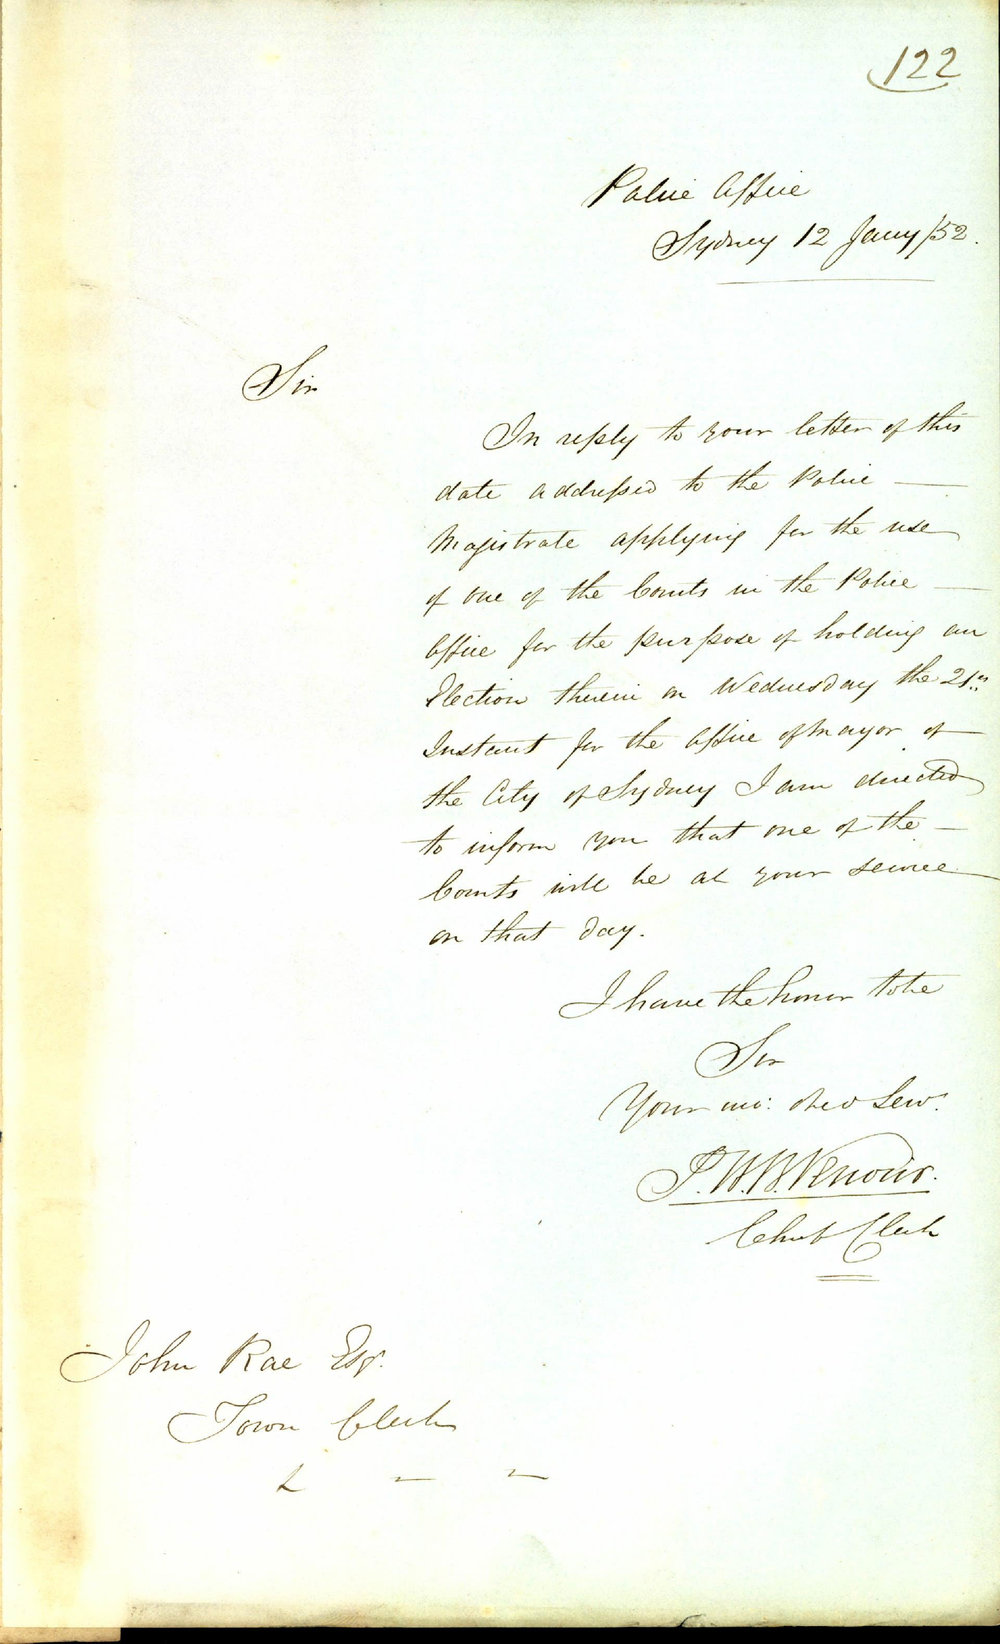 122
Police Office
Sydney 12 Jany /52.
Sir
In reply to your letter of this
date addressed to the Police
Magistrate applying for the use
of one of the Courts in the Police
Office for the purpose of holding an
Election therein on Wednesday the 21st
Instant for the Office of Mayor of
the City of Sydney I am directed
to inform you that one of the
Courts will be at your service
on that day.
I have the honor to be
Sir
Your mo: obed Serv.
Chief Clerk
John Rae Esqr.
Town Clerk